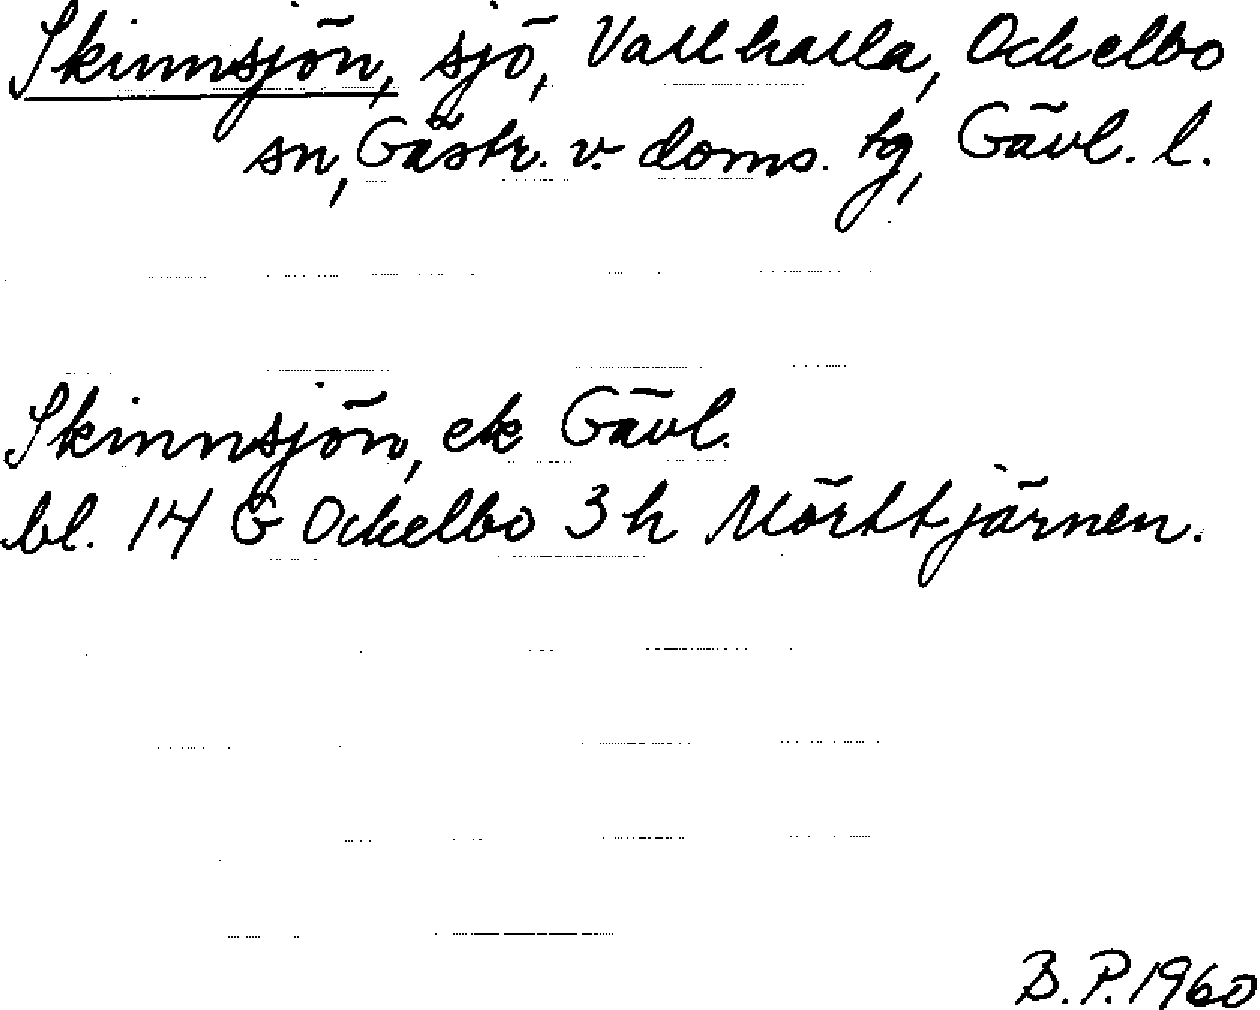 Skinnsjön, sjö, Vallhalla, Ockelbo
sn, Gästr. v. doms. tg, Gävl. l.
Skinnsjön, ek Gävl.
bl. 14 G Ockelbo 3 h Mörttjärnen.
B. P. 1960